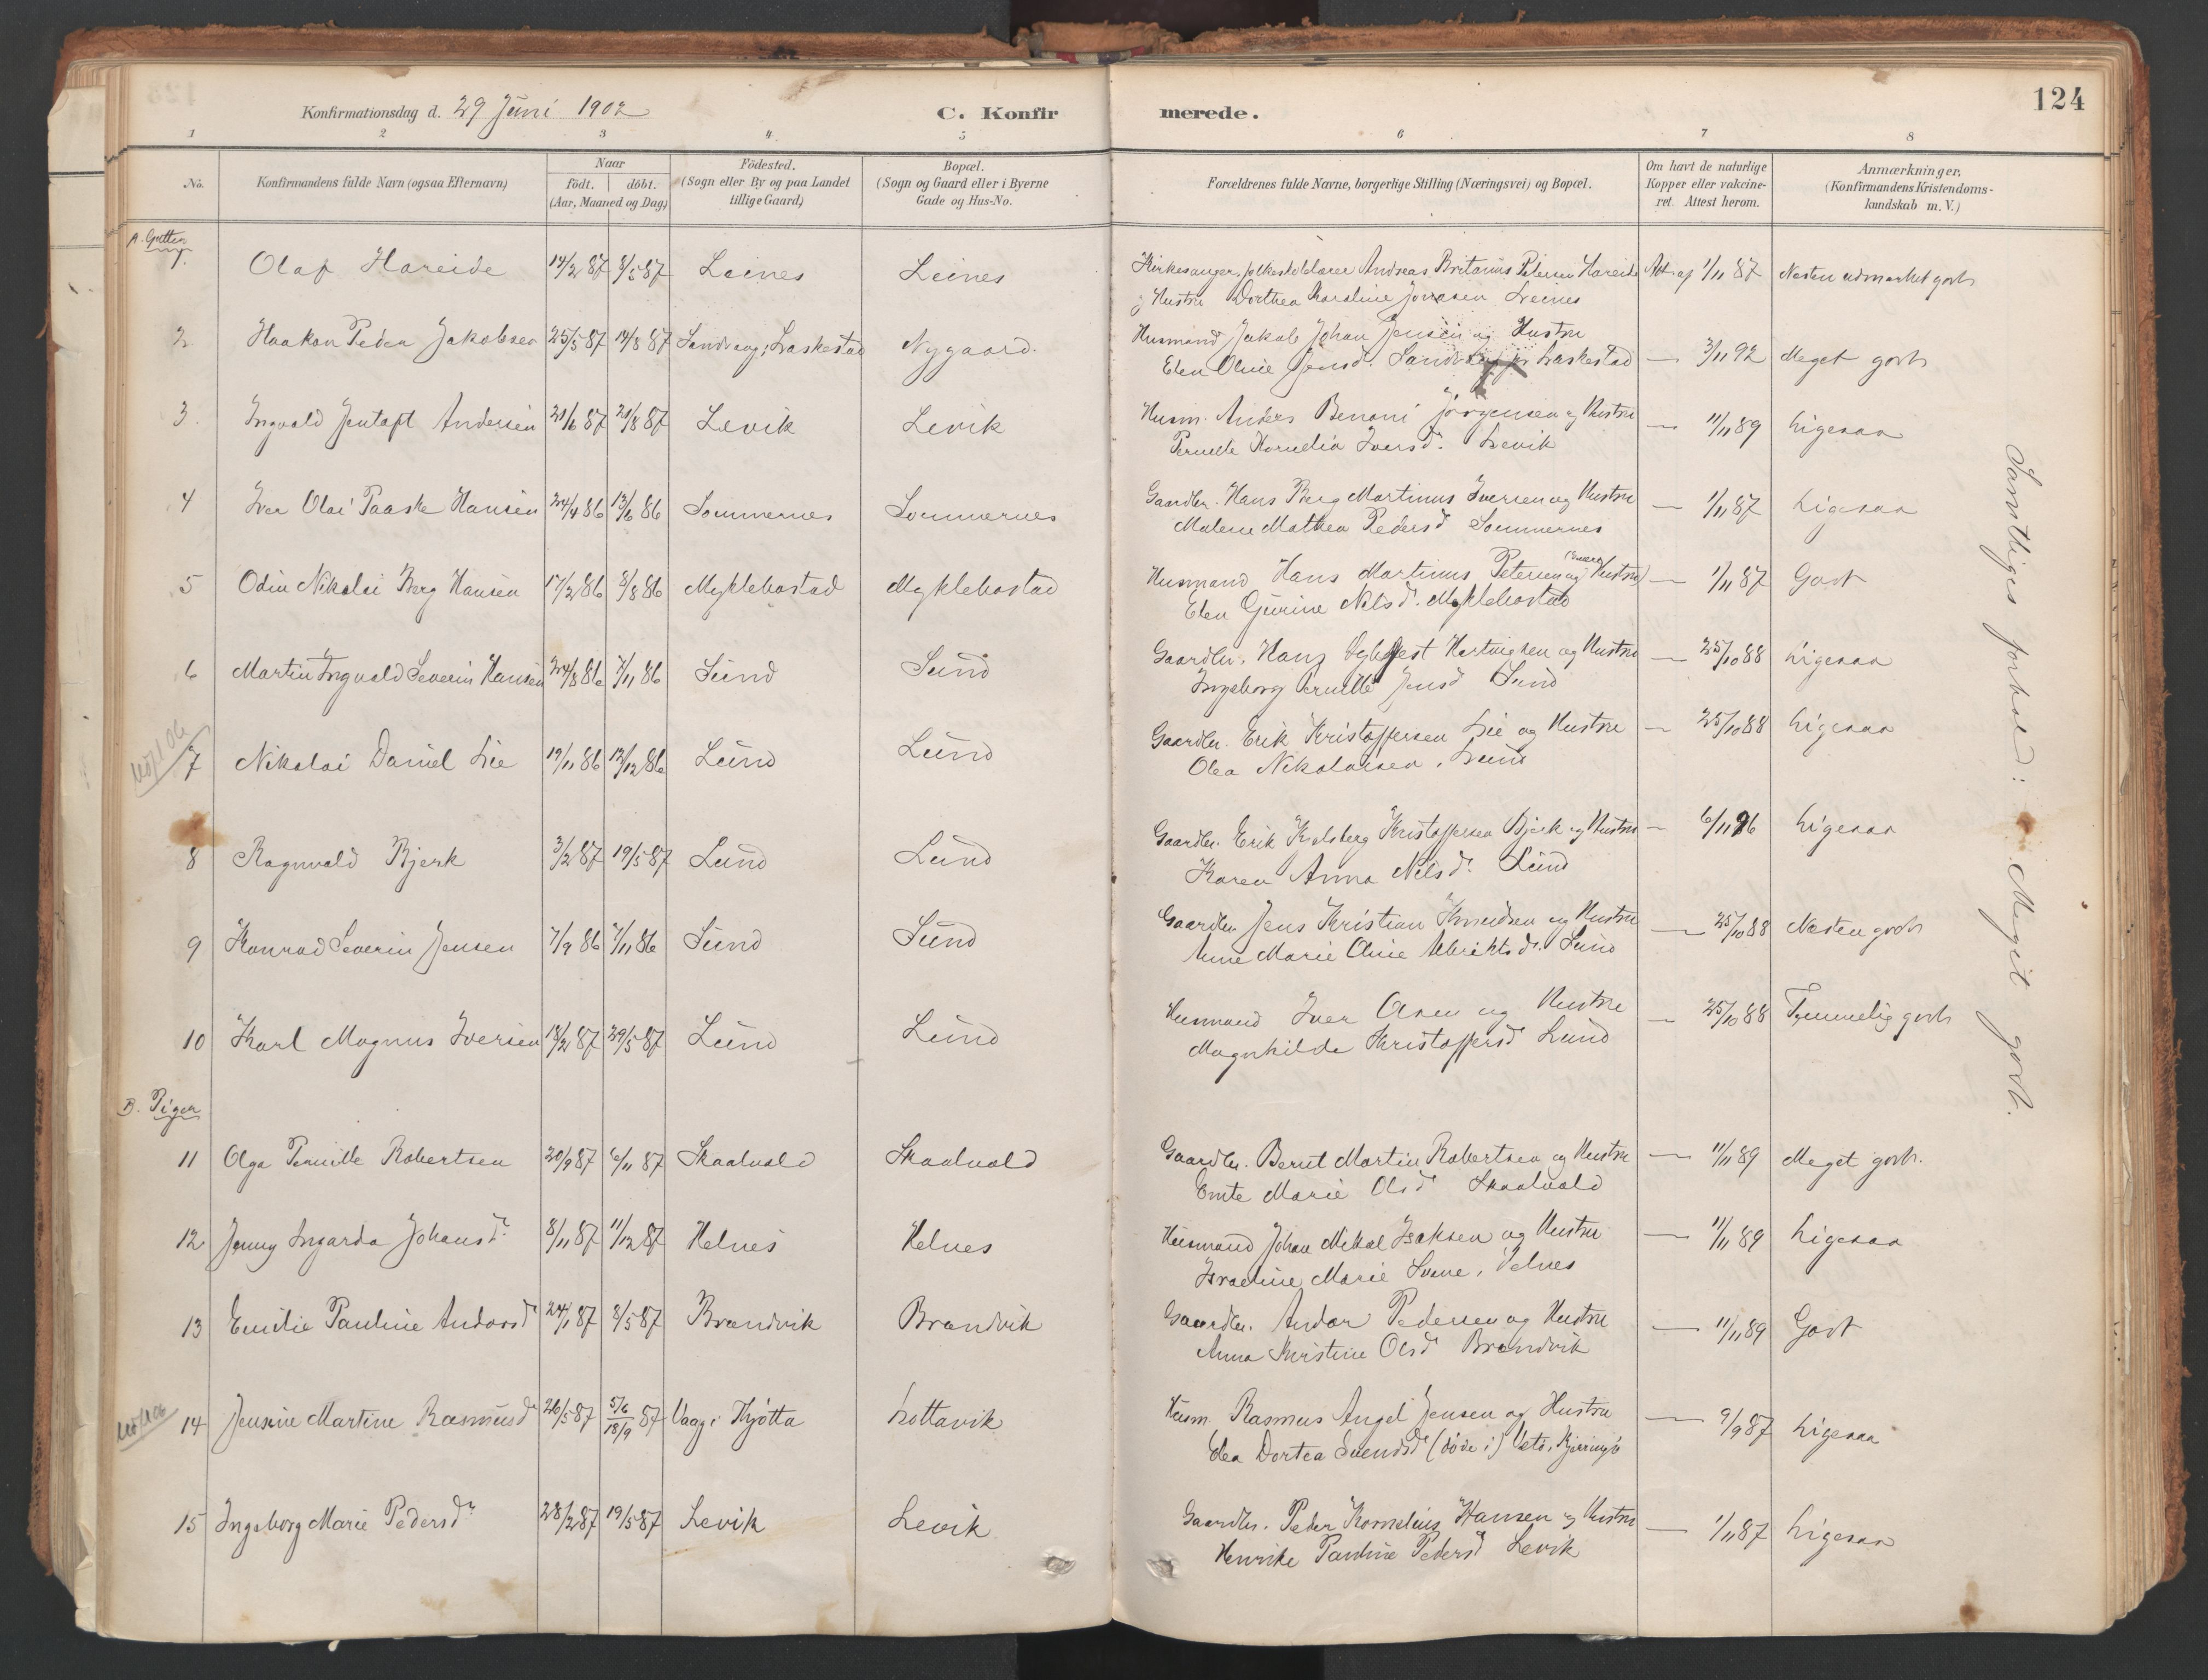 Konfirmationsdag d. 29 Juni 1902
C. Konfirmerede.
124
1 2 3 4 5 6 7 8
No.
Konfirmandens fulde Navn (ogsaa Efternavn)
Naar
födt. | döbt.
(Aar, Maaned og Dag)
Födested.
(Sogn eller By og paa Landet
tillige Gaard)
Bopæl.
(Sogn og Gaard eller i Byerne
Gade og Hus-No.
Forældrenes fulde Navne, borgerlige Stilling (Næringsvei) og Bopæl.
Om havt de naturlige
Kopper eller vakcine-
ret. Attest herom.
Anmærkninger.
(Konfirmandens Kristendoms-
kundskab m. V.)
A. Gutter
1. Olaf Hareide 14/2 87 8/5 87 Leines Leines Kirkesanger, folkeskolelærer Andreas Britanius Petersen Hareide Att. af 1/11 87 Næsten udmærket godt
og Hustru Dorthea Karoline Jonasen Leines
2 Haakon Peder Jakobsen 25/5 87 14/8 87 Sandvaag, Laskestad Nygaard. Husmand Jakob Johan Jensen og Hustru — 3/11 92 Meget godt
Elen Oline Jensd. Laskestad
3. Ingvald Jentoft Andersen 21/6 87 21/8 87 Levik Levik Husm. Anders Benoni Jörgensen og Hustru — 11/11 89 Ligesaa
Pernille Kornelia Iversdr. Levik
4 Iver Olai Paaske Hansen 24/4 86 13/6 86 Sommernes Sommernes Gaardbr. Hans Berg Martinus Iversen og Hustru — 1/11 87 Ligesaa
Malene Mathea Pedersd Sommernes
5 Odin Nikolai Berg Hansen 17/2 86 8/8 86 Myklebostad Myklebostad Husmand Hans Martinus Petersen og Hustru — 1/11 87 Godt
Elen Gurine Nilsd. Myklebostad
6 Martin Ingvald Severin Hansen 24/8 86 7/11 86 Lund Lund Gaardbr. Hans Hartvigsen og Hustru — 25/10 88 Ligesaa
Ingeborg Pernille Jensd Lund
7 Nikolai Daniel Lie 19/11 86 12/12 86 Lund Lund Gaardbr. Erik Kristoffersen Lie og Hustru — 25/10 88 Ligesaa
Olea Nikolaisen, Lund
8 Ragnvald Bjerk 3/2 87 19/5 87 Lund Lund Gaardbr. Erik Kristoffersen Bjerk og Hustru — 6/11 96 Ligesaa
Karen Anna Nilsdr. Lund
9 Konrad Severin Jensen 7/9 86 7/11 86 Lund Lund Gaardbr. Jens Kristian Knudsen og Hustru — 25/10 88 Næsten godt
Anne Marie Oline Albriktsdr. Lund
10 Karl Magnus Iversen 18/2 87 29/5 87 Lund Lund Husmand Iver Olsen og Hustru — 25/10 88 Temmelig godt
Magnhilde Kristoffersd Lund
B. Piger
11 Olga Pernille Robertsen 20/9 87 6/11 87 Skaalvold Skaalvold Gaardbr. Bernt Martin Robertsen og Hustru — 11/11 89 Meget godt.
Marie Olsd Skaalvold
12 Jenny Ingarda Johansdr. 8/11 87 11/12 87 Helnes Helnes Husmand Johan Mikal Isaksen og Hustru — 11/11 89 Ligesaa
Israeline Marie Helnes
13 Emilie Pauline Andorsdr 24/1 87 8/5 87 Brandvik Brandvik Gaardbr. Andor Pedersen og Hustru — 11/11 89 Godt
Anna Kristine Olsd Brandvik
14 Jensine Martine Rasmusdr 26/5 87 5/6 18/9 87 Vaag i Tjötta Lottavik Husm. Rasmus Angel Jensen og Hustru — 9/9 87 Ligesaa
Elea Dortea Svendsd (döde i)
15 Ingeborg Marie Pedersdr 28/2 87 19/5 87 Levik Levik Gaardbr. Peder Kornelius Hansen og Hustru — 1/11 87 Ligesaa
Henrike Pauline Pedersd Levik
Samtliges forhold: Meget godt.